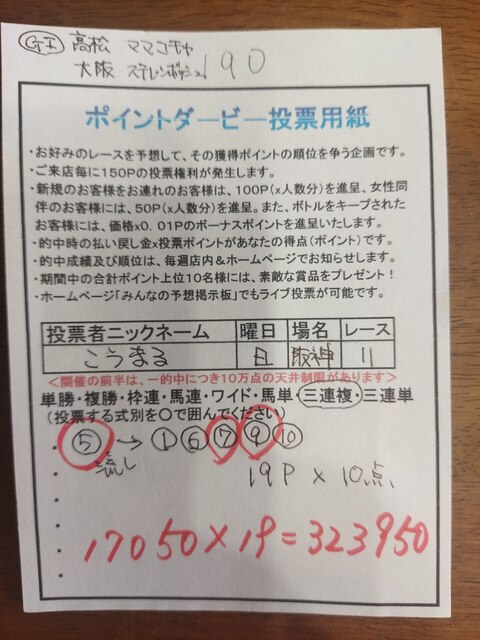 GI 高松 ママコチャ
大阪 ステレンボッシュ 190
ポイントダービー投票用紙
・お好みのレースを予想して、その獲得ポイントの順位を争う企画です。
・ご来店毎に150Pの投票権利が発生します。
・新規のお客様をお連れのお客様は、100P(x人数分)を進呈、女性同
伴のお客様には、50P(x人数分)を進呈。また、ボトルをキープされた
お客様には、価格x0.01Pのボーナスポイントを進呈いたします。
・的中時の払い戻し金x投票ポイントがあなたの得点(ポイント)です。
・的中成績及び順位は、毎週店内&ホームページでお知らせします。
・期間中の合計ポイント上位10名様には、素敵な賞品をプレゼント!
・ホームページ「みんなの予想掲示板」でもライブ投票が可能です。
投票者ニックネーム 曜日 場名 レース
こうまる 日 阪神 11
<開催の前半は、一的中につき10万点の天井制限があります>
単勝・複勝・枠連・馬連・ワイド・馬単・三連複・三連単
(投票する式別を〇で囲んでください)
・⑤→①⑥⑦⑨⑩
・流し 19P x 10点
・
・17050×19=323950
・